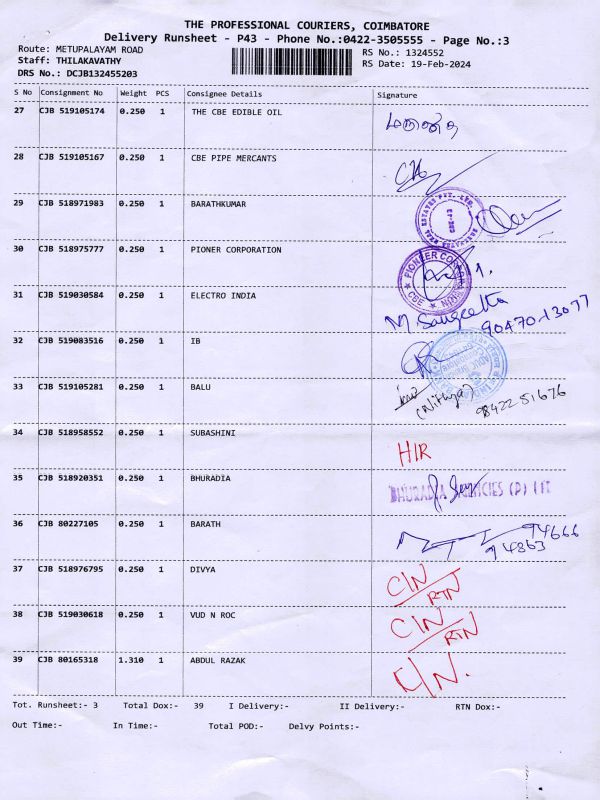 THE PROFESSIONAL COURIERS, COIMBATORE
Delivery Runsheet - P43 - Phone No.:0422-3505555 - Page No.:3
Route: METUPALAYAM ROAD RS No.: 1324552
Staff: THILAKAVATHY RS Date: 19-Feb-2024
DRS No.: DCJB132455203
S No Consignment No Weight PCS Consignee Details Signature
27 CJB 519105174 0.250 1 THE CBE EDIBLE OIL
28 CJB 519105167 0.250 1 CBE PIPE MERCANTS
29 CJB 518971983 0.250 1 BARATHKUMAR
ESTATES PVT. LTD.
30 CJB 518975777 0.250 1 PIONER CORPORATION
PIONEER CBE
31 CJB 519030584 0.250 1 ELECTRO INDIA M. Sangeetha
9047013077
32 CJB 519083516 0.250 1 IB
33 CJB 519105281 0.250 1 BALU (Nithya) 98422 51676
34 CJB 518958552 0.250 1 SUBASHINI HIR
35 CJB 518920351 0.250 1 BHURADIA BHURADIA AGENCIES (P) LT
36 CJB 80227105 0.250 1 BARATH 94666
94863
37 CJB 518976795 0.250 1 DIVYA C/N
RTN
38 CJB 519030618 0.250 1 VUD N ROC C/N
RTN
39 CJB 80165318 1.310 1 ABDUL RAZAK C/N.
Tot. Runsheet:- 3 Total Dox:- 39 I Delivery:- II Delivery:- RTN Dox:-
Out Time:- In Time:- Total POD:- Delvy Points:-